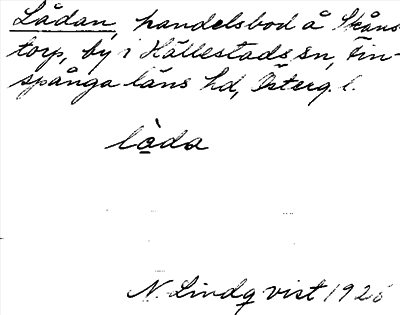 Lådan, handelsbod å Skåns-
torp, by i Hällestads sn, Fin-
spånga läns hd, Österg. l.
lò̱da
N. Lindqvist 1926